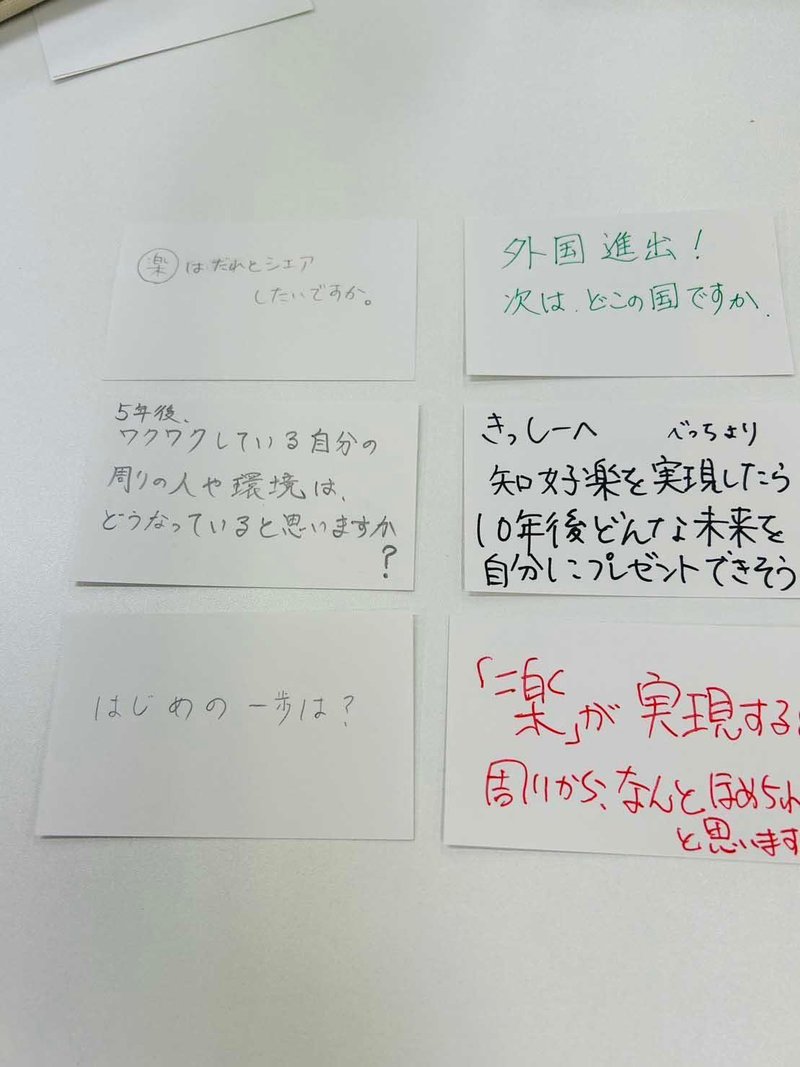 楽はだれとシェア
したいですか。
外国進出!
次は、どこの国ですか.
5年後、
ワクワクしている自分の
周りの人や環境は、
どうなっていると思いますか
?
きっしーへ べっちより
知好楽を実現したら
10年後どんな未来を
自分にプレゼントできそう
はじめの一歩は?
「楽」が実現する
周りから、なんとほめられ
と思います